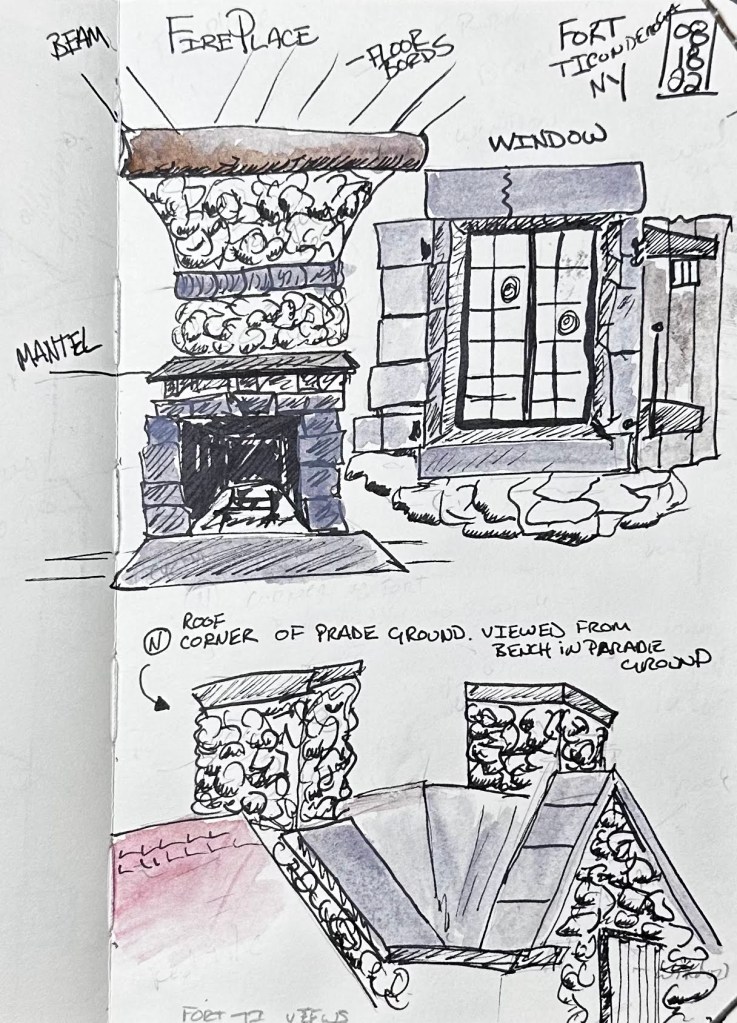 BEAM
FIREPLACE
FLOOR
BORDS
FORT
TICONDEROGA
NY
08
18
22
WINDOW
MANTEL
N
ROOF
CORNER OF PRADE GROUND. VIEWED FROM
BENCH IN PARADE
GROUND
FORT TI VIEWS